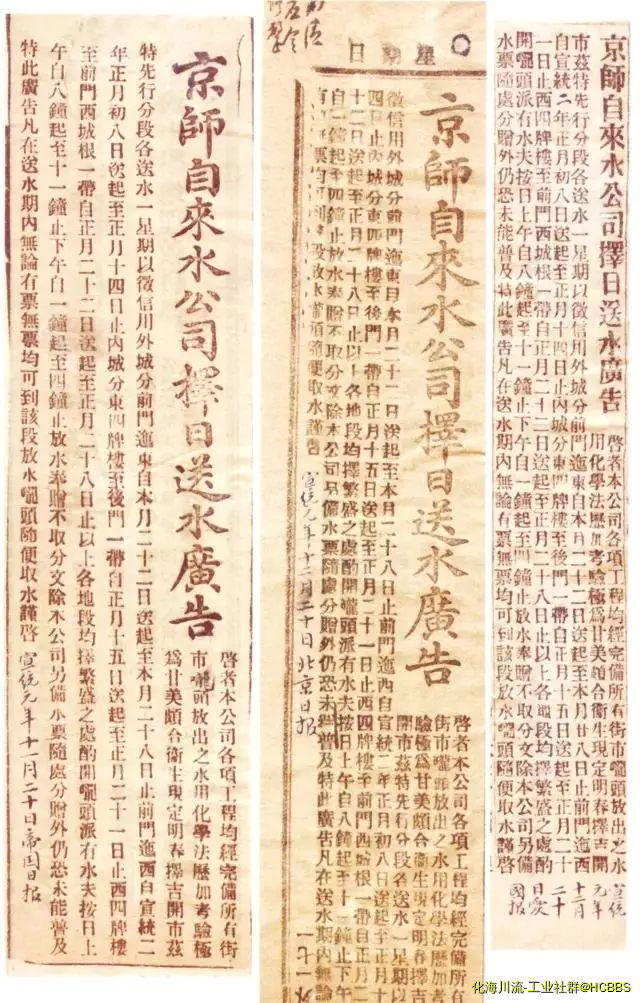 京師自來水公司擇日送水廣告
啓者本公司各項工程均經完備所有街市嚨頭放出之水
用化學法歷加考驗極爲甘美頗合衞生現定明春擇吉開
市茲特先行分段各送水一星期以徵信用外城分前門迤東自本月二十二日送起至本月廿八日止前門迤西
自宣統二年正月初八日送起至正月十四日止內城分東四牌樓至後門一帶自正月十五日送起至正月二十
一日止西四牌樓至前門西城根一帶自正月二十二日送起至正月二十八日止以上各地段均擇繁盛之處酌
開嚨頭派有水夫按日上午自八鐘起至十一鐘止下午自一鐘起至四鐘止放水奉贈不取分文除本公司另備
水票隨處分贈外仍恐未能普及特此廣告凡在送水期內無論有票無票均可到該段放水嚨頭隨便取水謹啓
宣統
元年
十二月
二十
日愛
國報
日期星
京師自來水公司擇日送水廣告
啓者本公司各項工程均經完備所有
街市嚨頭放出之水用化學法歷加考
驗極爲甘美頗合衞生現定明春擇吉
開市茲特先行分段各送水一星期以
徵信用外城分前門迤東自本月二十二日送起至本月二十八日止前門迤西自宣統二年正月初八日送起至正月十
四日止內城分東四牌樓至後門一帶自正月十五日送起至正月二十一日止西四牌樓至前門西城根一帶自正月二
十二日送起至正月二十八日止以上各地段均擇繁盛之處酌開嚨頭派有水夫按日上午自八鐘起至十一鐘止下午
自一鐘起至四鐘止放水奉贈不取分文除本公司另備水票隨處分贈外仍恐未能普及特此廣告凡在送水期內無論
有票無票均可到該段放水嚨頭隨便取水謹啓
宣統元年十二月二十日北京日報
京師自來水公司擇日送水廣告
啓者本公司各項工程均經完備所有街
市嚨頭放出之水用化學法歷加考驗極
爲甘美頗合衞生現定明春擇吉開市茲
特先行分段各送水一星期以徵信用外城分前門迤東自本月二十二日送起至本月二十八日止前門迤西自宣統二
年正月初八日送起至正月十四日止內城分東四牌樓至後門一帶自正月十五日送起至正月二十一日止西四牌樓
至前門西城根一帶自正月二十二日送起至正月二十八日止以上各地段均擇繁盛之處酌開嚨頭派有水夫按日上
午自八鐘起至十一鐘止下午自一鐘起至四鐘止放水奉贈不取分文除本公司另備水票隨處分贈外仍恐未能普及
特此廣告凡在送水期內無論有票無票均可到該段放水嚨頭隨便取水謹啓
宣統元年十一月二十日帝国日报
化海川流-工业社群@HCBBS